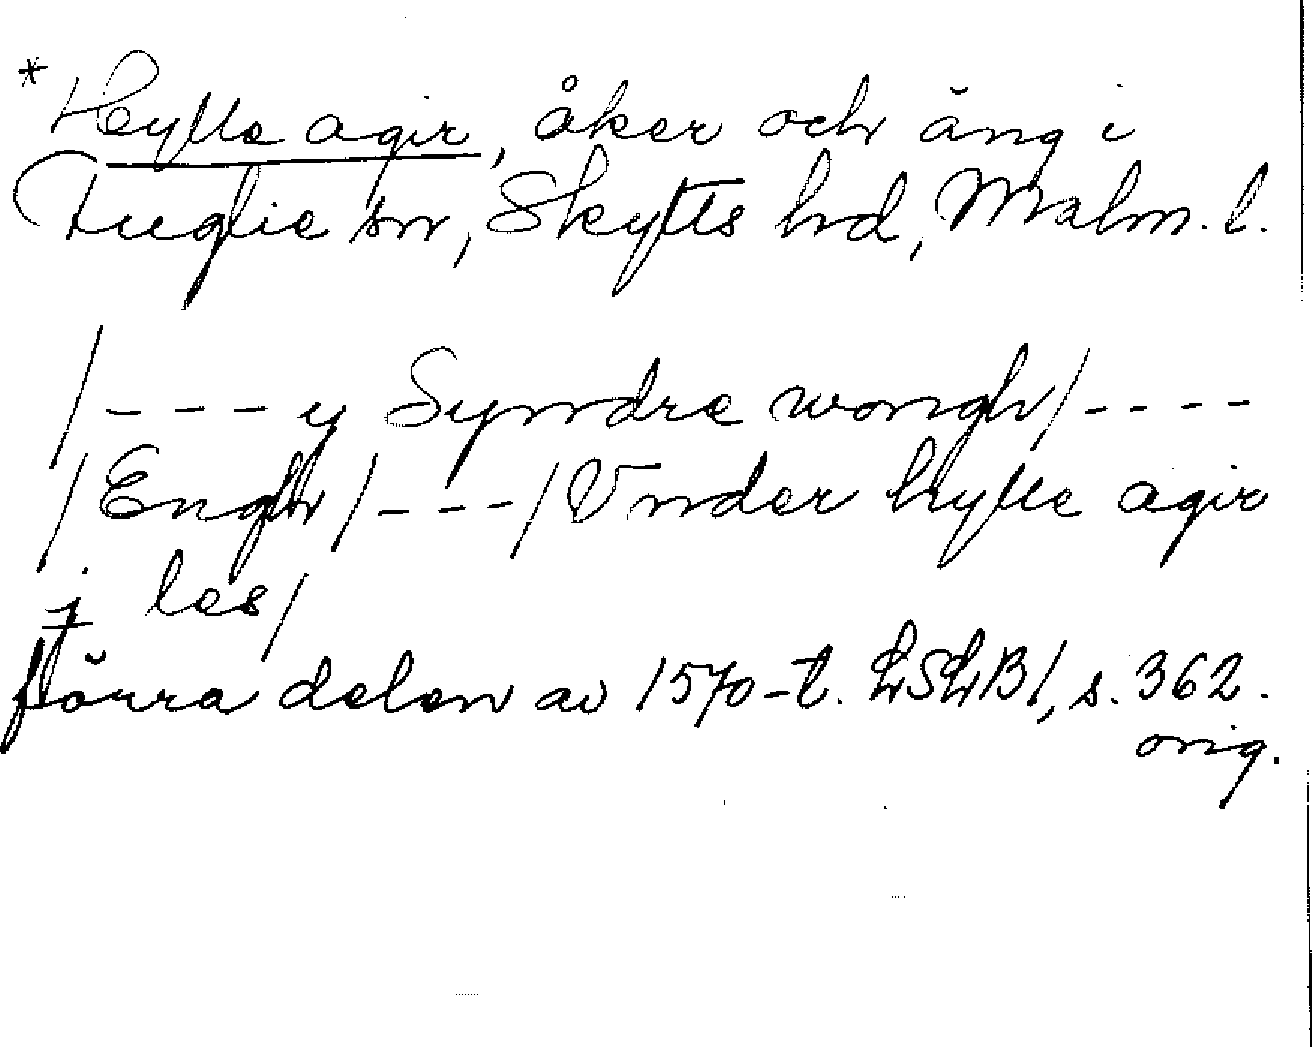 * Hylle agir, åker och äng i
Fuglie sn, Skytts hd, Malm. l.
/ - - - y Syndre wongh / - - - -
/ Engh / - - - / Vnder hylle agir
j les /
förra delen av 1570-t. LSLB1, s. 362.
orig.